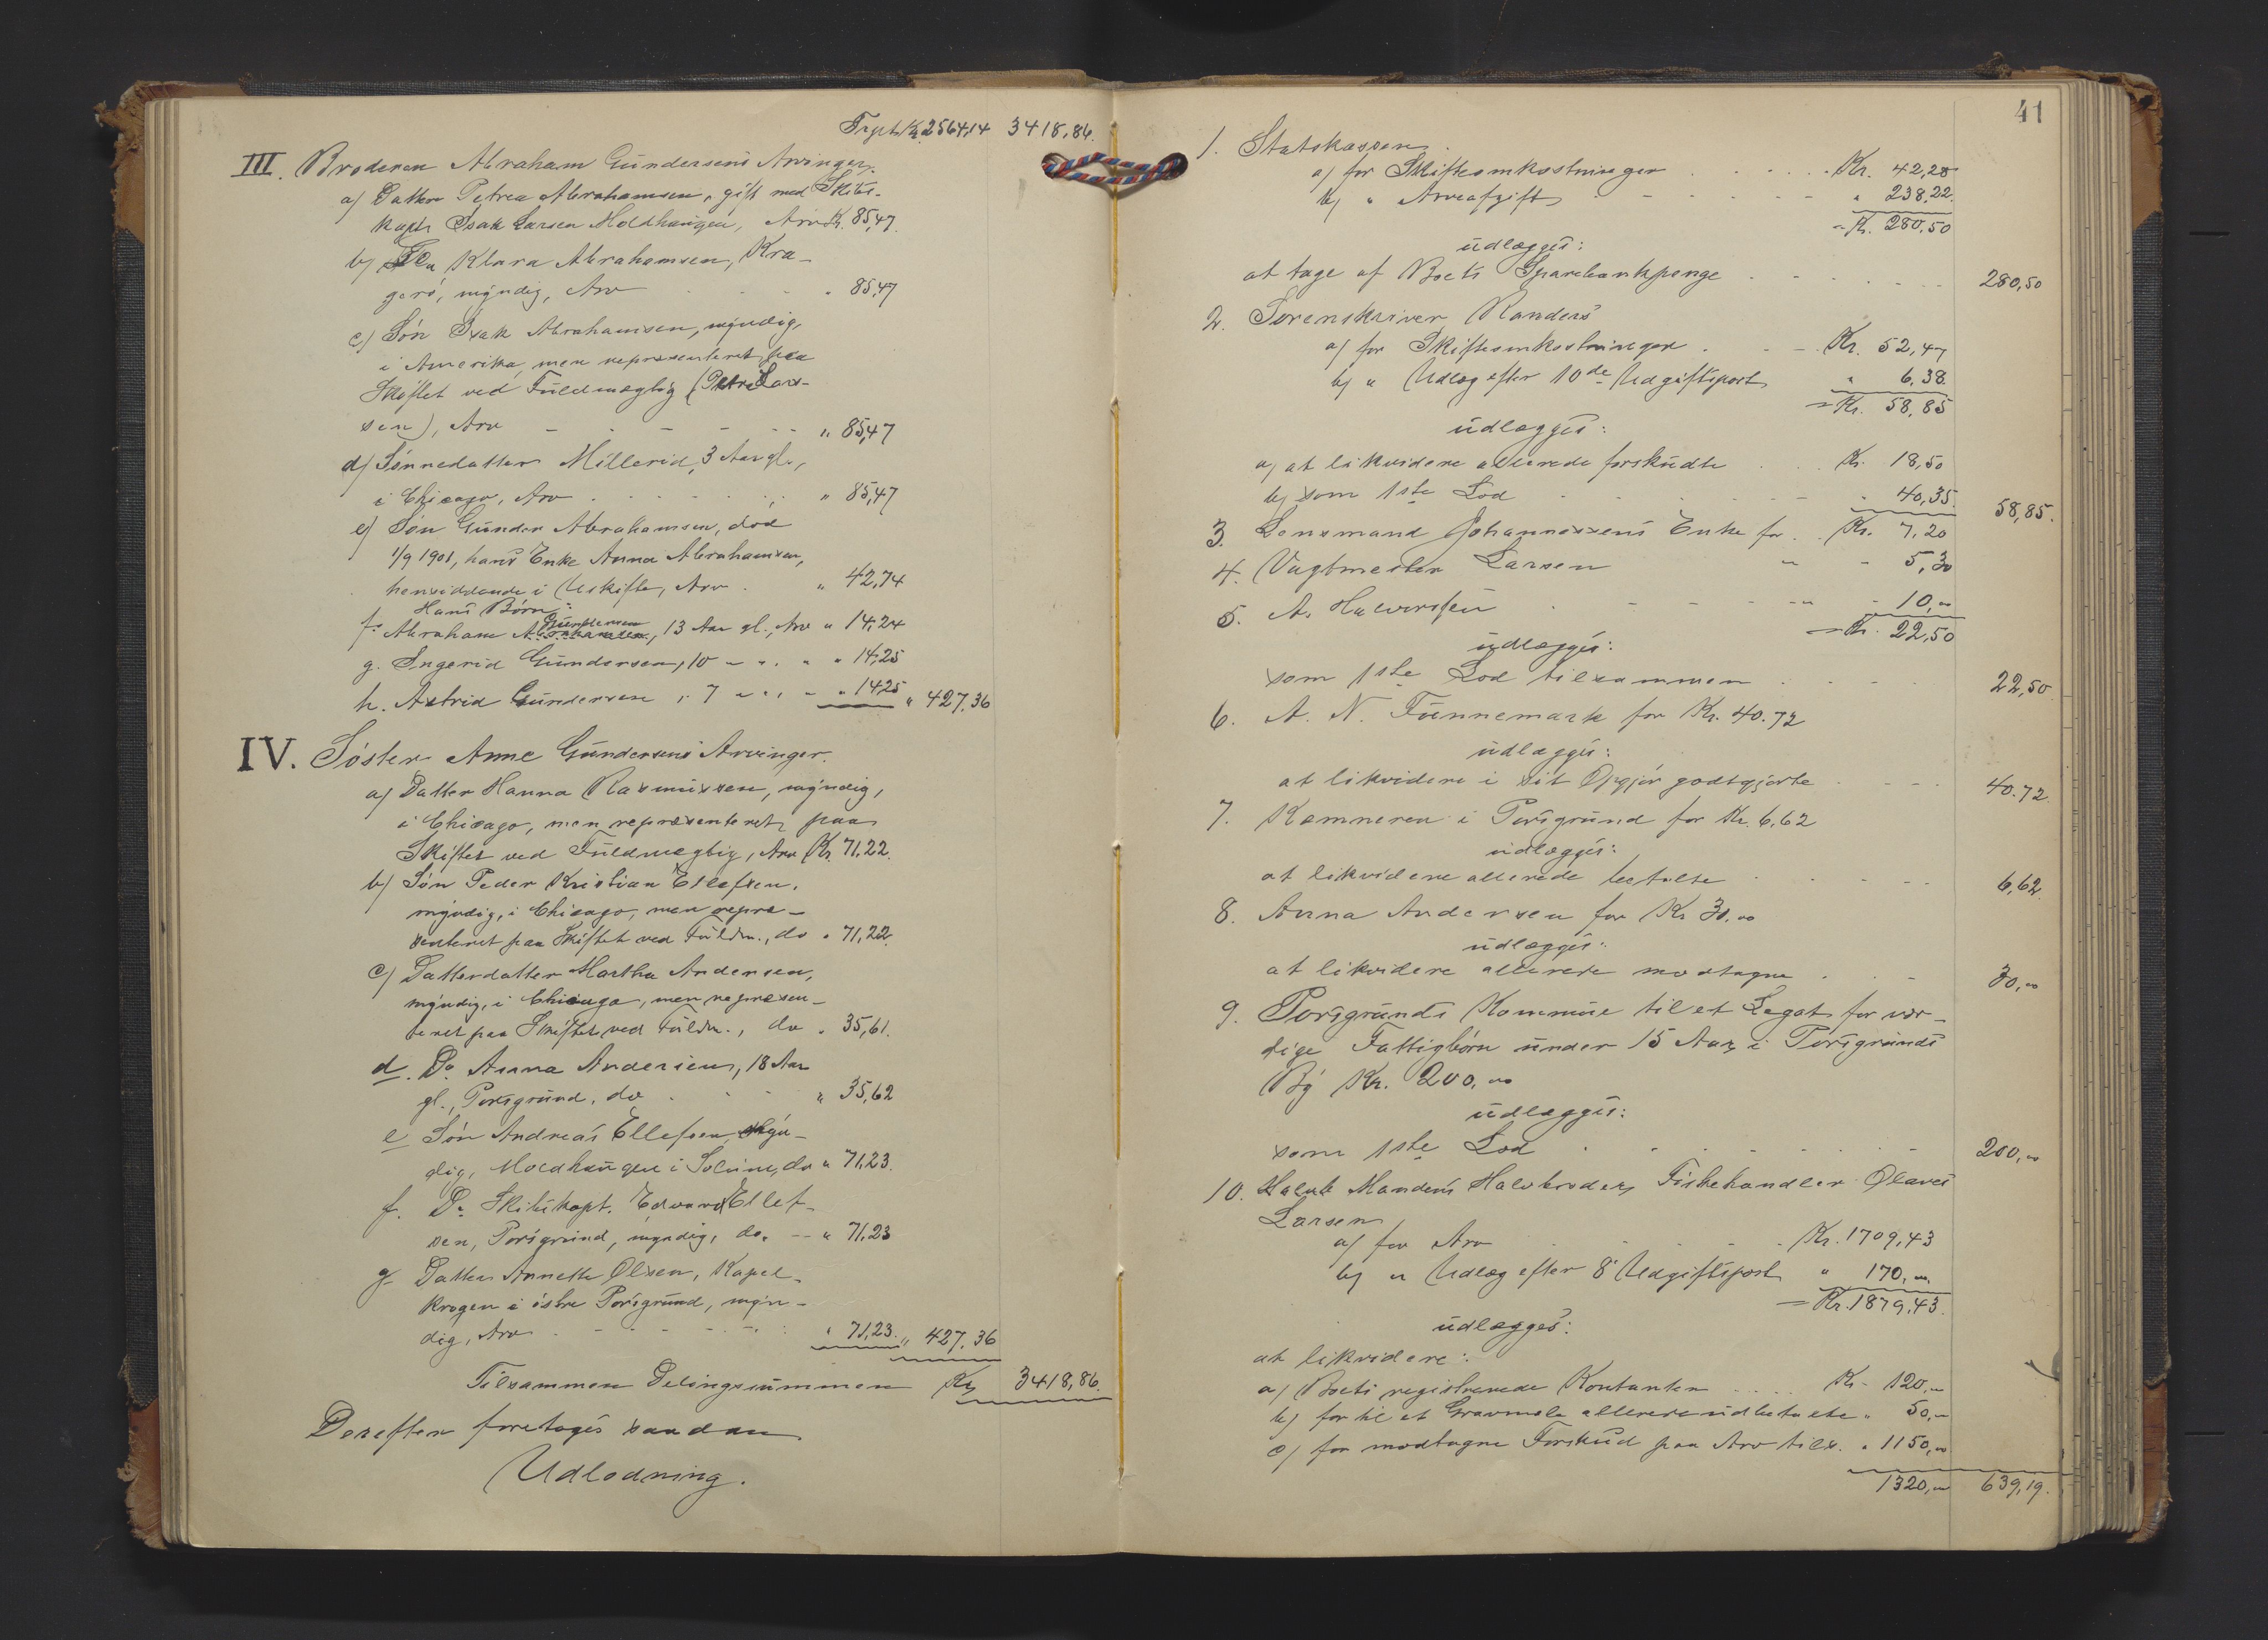 Trspt. Kr. 2564,14 3418,86.
III. Broderen Abraham Gundersens Arvinger.
a) Datter Petrea Abrahamsen, gift med Skibs-
kapt. Isak Larsen Moldhaugen, Arv Kr. 85,47.
b) Do Klara Abrahamsen, Kra-
gerø, myndig, Arv " 85,47
c) Søn Isak Abrahamsen, myndig,
i Amerika, men repræsenteret paa
Skiftet ved Fuldmægtig (Petre Lar-
sen), Arv " 85,47
d) Sønnedatter Millerid, 3 Aar gl.,
i Chicago, Arv " 85,47
e) Søn Gunder Abrahamsen, død
1/9 1901, hans Enke Anna Abrahamsen,
hensiddende i Uskifte, Arv " 42,74
Hans Børn:
f. Abraham Abrahamsen Gundersen, 13 Aar gl., Arv " 14,24
g. Ingerid Gundersen, 10 " " " " 14,25
h. Astrid Gundersen, 7 " " " " 14,25 " 427,36
IV. Søster Anne Gundersens Arvinger.
a) Datter Hanna Rasmussen, myndig,
i Chicago, men repræsenteret paa
Skiftet ved Fuldmægtig, Arv Kr. 71,22.
b) Søn Peder Kristian Ellefsen,
myndig, i Chicago, men repræ-
senteret paa Skiftet ved Fuldm., do " 71,22.
c) Datterdatter Martha Andersen,
myndig, i Chicago, men repræsen-
teret paa Skiftet ved Fuldm., do " 35,61.
d. Do Anna Andersen, 18 Aar
gl., Porsgrund, do " 35,62
e Søn Andreas Ellefsen, myn-
dig, Moldhaugen i Solum, do " 71,23.
f. Do Skibskapt. Edvard Ellef-
sen, Porsgrund, myndig, do. " 71,23
g. Datter Annette Olsen, Kapel-
krogen i østre Porsgrund, myn-
dig, Arv " 71,23. " 427,36
Tilsammen Delingssummen Kr. 3418,86.
Derefter foretages saadan
Udlodning.
41
1. Statskassen
a) for Skifteomkostninger Kr. 42,28
b) " Arveafgift " 238,22.
= Kr. 280,50
udlægges:
at tage af Boets Sparebankpenge 280,50
2. Sorenskriver Randers
a) for Skifteomkostninger Kr. 52,47
b) " Udlæg efter 10de Udgiftspost " 6,38.
= Kr. 58,85
udlægges:
a) at likvidere allerede forskudte Kr. 18,50
b) som 1ste Lod " 40,35. 58,85.
3. Lensmand Johannessens Enke for Kr. 7,20
4. Vagtmester Larsen " " 5,30
5. A. Halvorsen " " 10,00
= Kr. 22,50
udlægges:
som 1ste Lod tilsammen 22,50
6. A. N. Funnemark for Kr. 40.72
udlægges:
at likvidere i sit Opgjør godtgjorte 40.72.
7. Kæmneren i Porsgrund for Kr. 6,62
udlægges:
at likvidere allerede betalte 6,62.
8. Anna Andersen for Kr 30,00
udlægges:
at likvidere allerede modtagne 30,00
9. Porsgrunds Kommune til et Legat for vær-
dige Fattigbørn under 15 Aar i Porsgrunds
By Kr. 200,00
udlægges:
som 1ste Lod 200,00
10. Salub Mandens Halvbroder, Fiskehandler Olaves
Larsen
a) for Arv Kr. 1709,43
b) " Udlæg efter 8de Udgiftspost " 170,00
= Kr. 1879,43.
udlægges:
at likvidere:
a) Boets registrerede Kontanter Kr. 120,00
b) for til et Gravmæle allerede udbetalte " 50,00
c) for modtagne Forskud paa Arv tils. " 1150,00
1320,00 639,19.